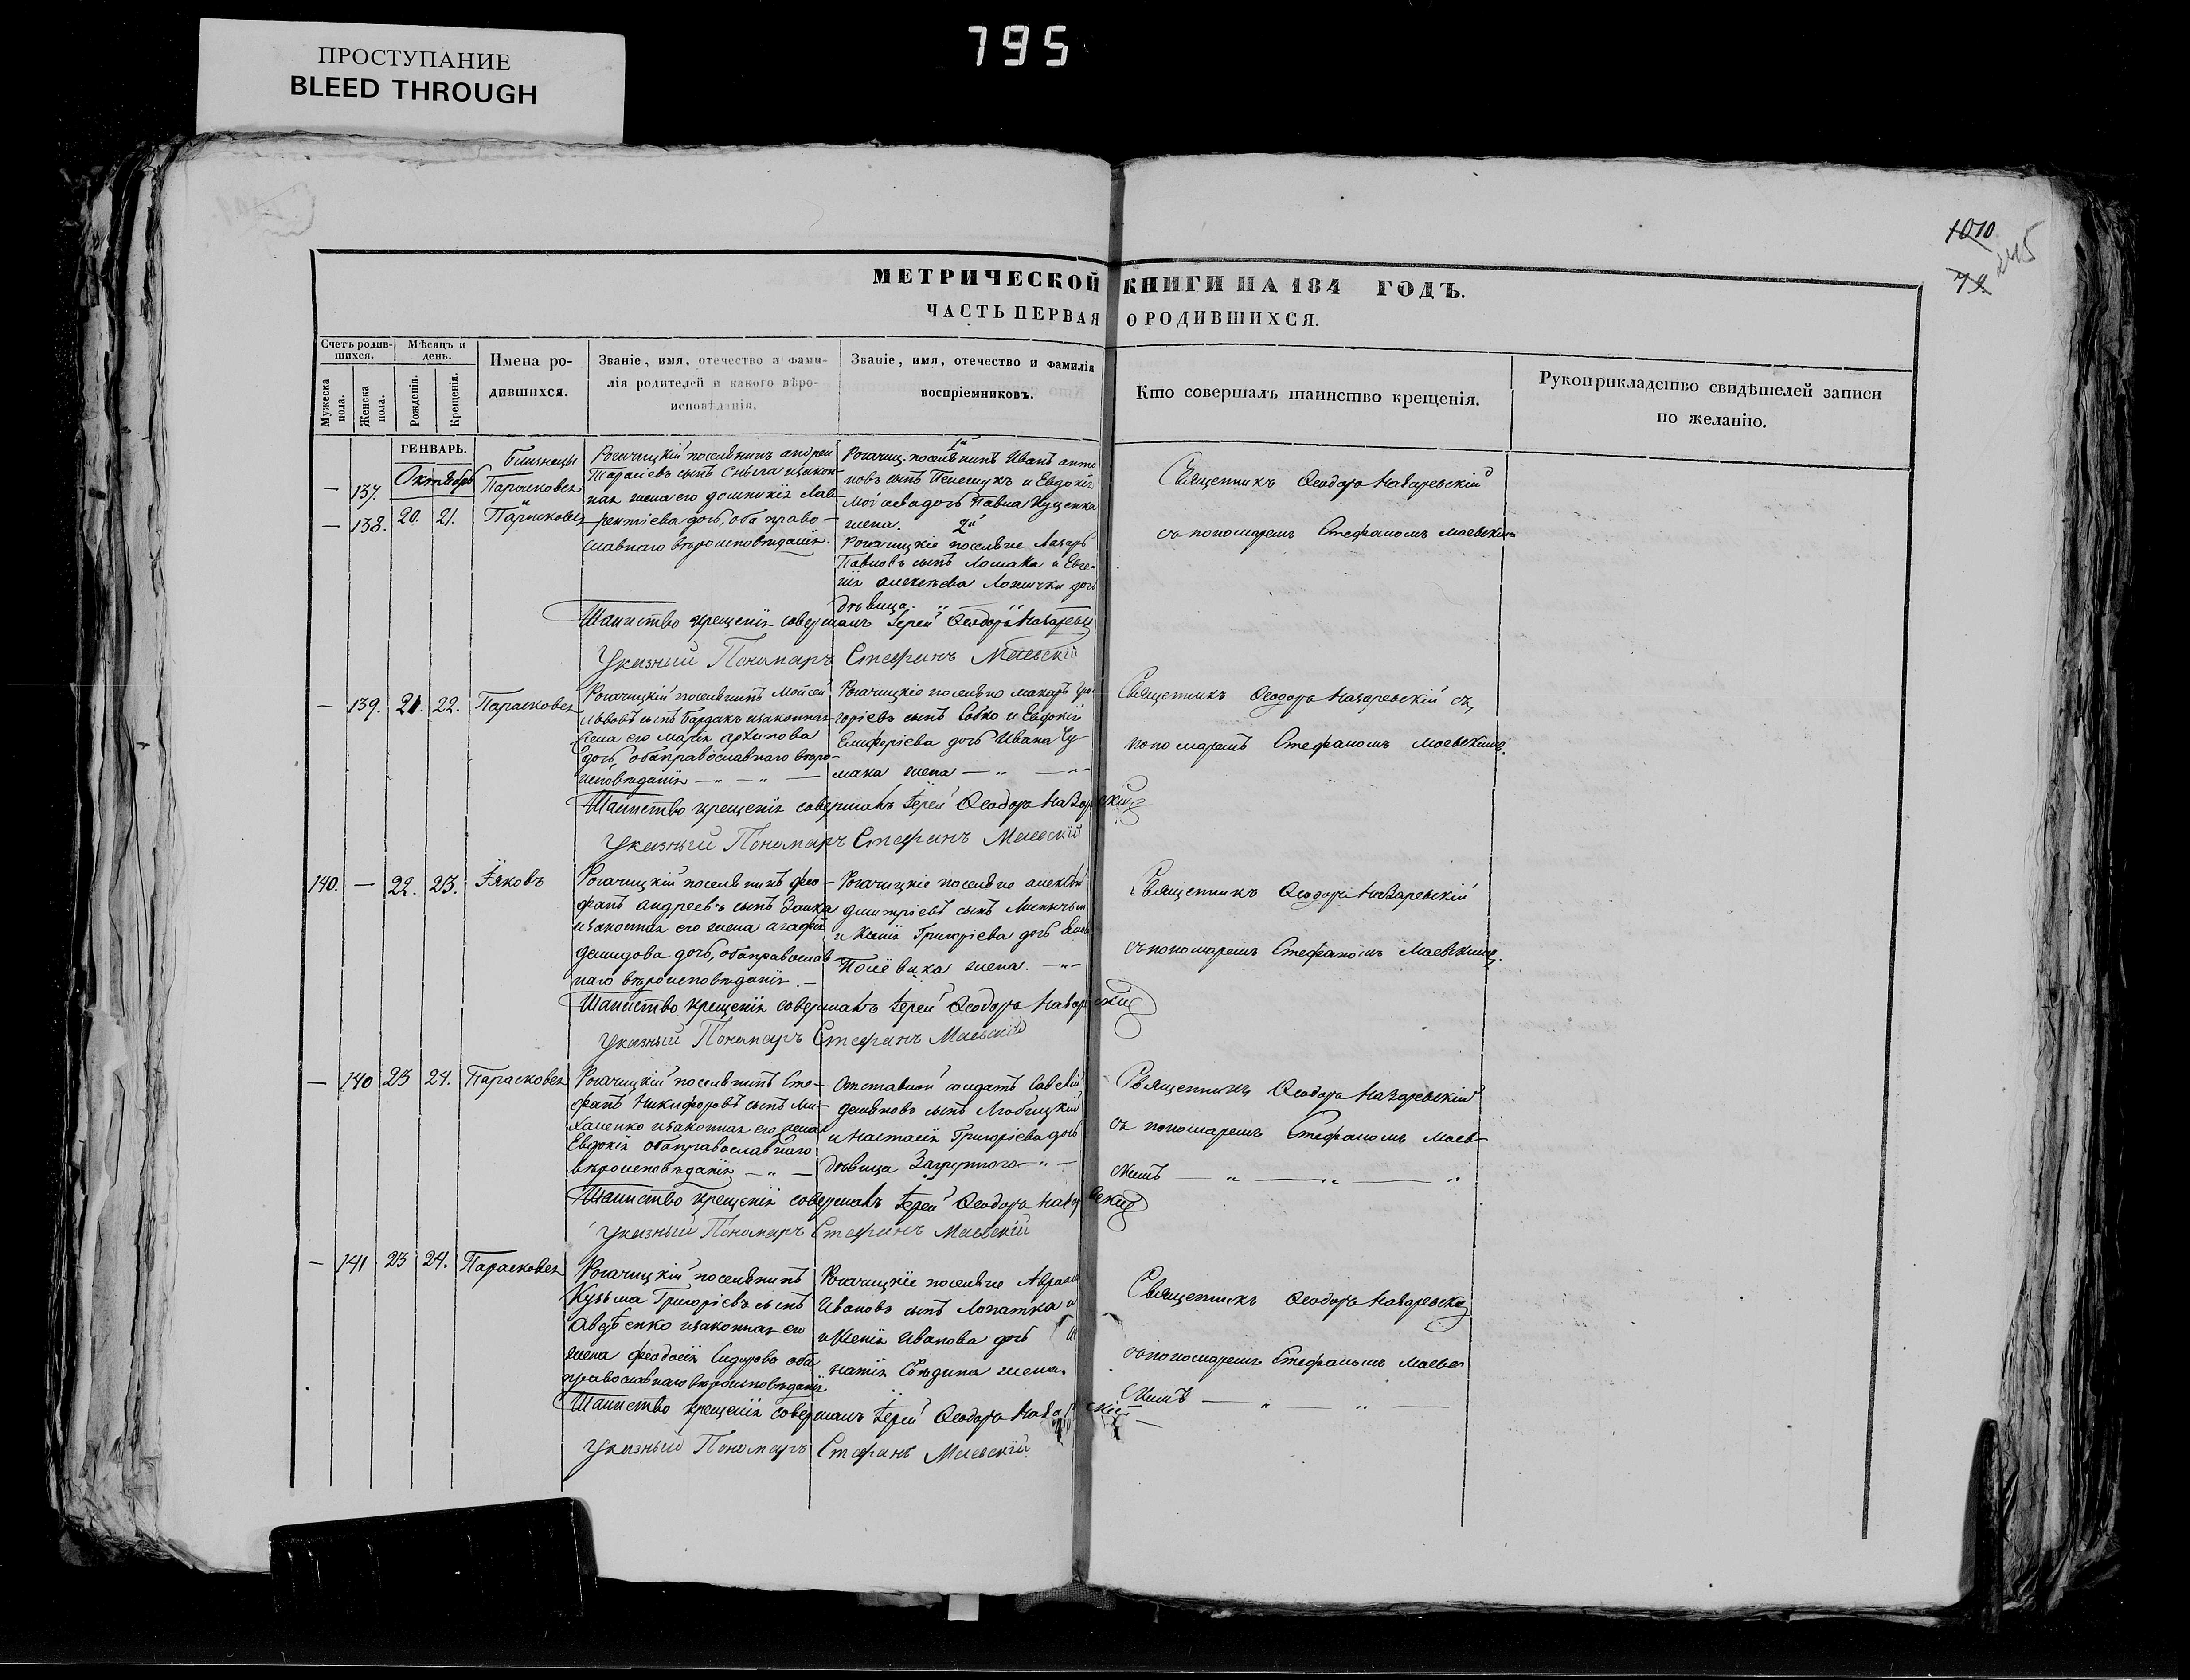 ПРОСТУПАНИЕ
BLEED THROUGH
795
1010
245
72
МЕТРИЧЕСКОЙ КНИГИ НА 184 ГОДЪ.
ЧАСТЬ ПЕРВАЯ О РОДИВШИХСЯ.
Счетъ родив-
шихся.
Мужеска пола.
Женска пола.
Мѣсяцъ и
день.
Рожденія.
Крещенія.
Имена ро-
дившихся.
Званіе, имя, отечество и фами-
лія родителей и какого вѣро-
исповѣданія.
Званіе, имя, отечество и фамилія
воспріемниковъ.
Кто совершалъ таинство крещенія.
Рукоприкладство свидѣтелей записи
по желанію.
ГЕНВАРЬ.
Октябрь
— 137.
— 138. 20. 21.
близнецы
Параскевея
и
Параскевея
Рогачицкій поселянинъ андрей
Тарасіевъ сынъ Смыла изакон-
ная жена его домникія Лав-
рентіева дочь, оба право-
славнаго вѣроисповѣданія.
1й
Рогачиц. поселянинъ Иванъ анто
новъ сынъ Пелешукъ и Евдокія
Мойсеева дочь Павла Куценка
жена. 2й
Рогачицкіе поселяне Лазарь
Павловъ сынъ Ломака и Евге-
нія алексѣева Ложички дочь
дѣвица.
Священникъ Ѳеодоръ Назаревскій
съ пономаремъ Стефаномъ Маевскимъ
Таинство крещенія совершалъ Іерей Ѳеодоръ Назаревск
Указный Пономарь Стефанъ Маевскій
— 139. 21. 22. Параскевея
Рогачицкій поселянинъ Мойсей
Львовъ сынъ Бардакъ изаконная
жена его Марія архипова
дочь, оба православнаго вѣро-
исповѣданія — „ —
Рогачицкіе поселяне макаръ Гри-
горіевъ сынъ Собко и Евдокія
Елиферіева дочь Ивана Чу
мака жена — „ —
Священникъ Ѳеодоръ Назаревскій съ
пономаремъ Стефаномъ Маевскимъ.
Таинство крещенія совершалъ Іерей Ѳеодоръ Назаревскій
Указный Пономарь Стефанъ Маевскій
140. — 22. 23. Іяковъ
Рогачицкій поселянинъ фео-
фанъ андреевъ сынъ Заика
изаконная его жена агафія
демидова дочь, оба православ-
наго вѣроисповѣданія. —
Рогачицкіе поселяне алексѣй
дмитріевъ сынъ
и Ксенія Григоріева дочь
Полёвика жена. — „ —
Священникъ Ѳеодоръ Назаревскій
съ пономаремъ Стефаномъ Маевскимъ.
Таинство крещенія совершалъ Іерей Ѳеодоръ Назаревскій
Указный Пономарь Стефанъ Маевскій
— 140 23 24. Параскевея
Рогачицкій поселянинъ Сте-
фанъ Никифоровъ сынъ Ми-
халенко изаконная его жена
Евдокія оба православнаго
вѣроисповѣданія — „ —
Отставной солдатъ Савелій
демяновъ сынъ Любицкій
и Настасія Григоріева дочь
дѣвица Загрутного — „ —
Священникъ Ѳеодоръ Назаревскій
съ пономаремъ Стефаномъ Маев-
скимъ — „ — „ — „
Таинство крещенія совершалъ Іерей Ѳеодоръ Назаревскій
Указный Пономарь Стефанъ Маевскій
— 141 23 24. Параскевея
Рогачицкій поселянинъ
Кузьма Григоріевъ сынъ
Авдѣенко изаконная его
жена феодосія Сидорова оба
православнаго вѣроисповѣданія
Рогачицкіе поселяне Аврамъ
Ивановъ сынъ Лопатка и
Ксенія Иванова дочь И
натія Сѣдина жена.
Священникъ Ѳеодоръ Назаревскій
съ пономаремъ Стефаномъ Маевс
скимъ — „ „
Таинство крещенія совершалъ Іерей Ѳеодоръ Назаревскій
Указный Пономарь Стефанъ Маевскій.